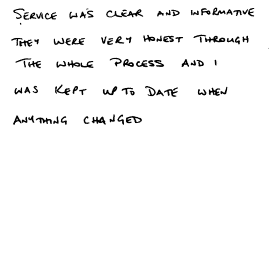 SERVICE WAS CLEAR AND INFORMATIVE
THEY WERE VERY HONEST THROUGH
THE WHOLE PROCESS AND I
WAS KEPT UP TO DATE WHEN
ANYTHING CHANGED